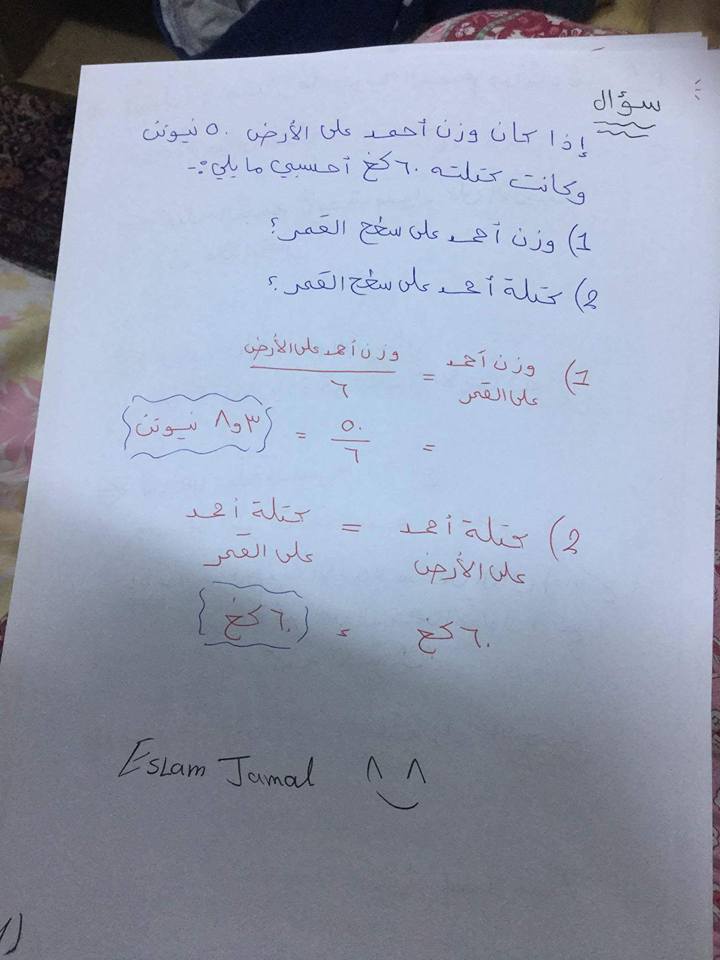 سؤال
إذا كان وزن أحمد على الأرض ٥٠ نيوتن
وكانت كتلته ٦٠ كغ أحسبي ما يلي :-
1) وزن أحمد على سطح القمر؟
2) كتلة أحمد على سطح القمر؟
1) وزن أحمد على القمر = وزن أحمد على الأرض / ٦
= ٥٠ / ٦ = ٨و٣ نيوتن
2) كتلة أحمد على الأرض = كتلة أحمد على القمر
٦٠ كغ = ٦٠ كغ
Eslam Jamal ^ ^